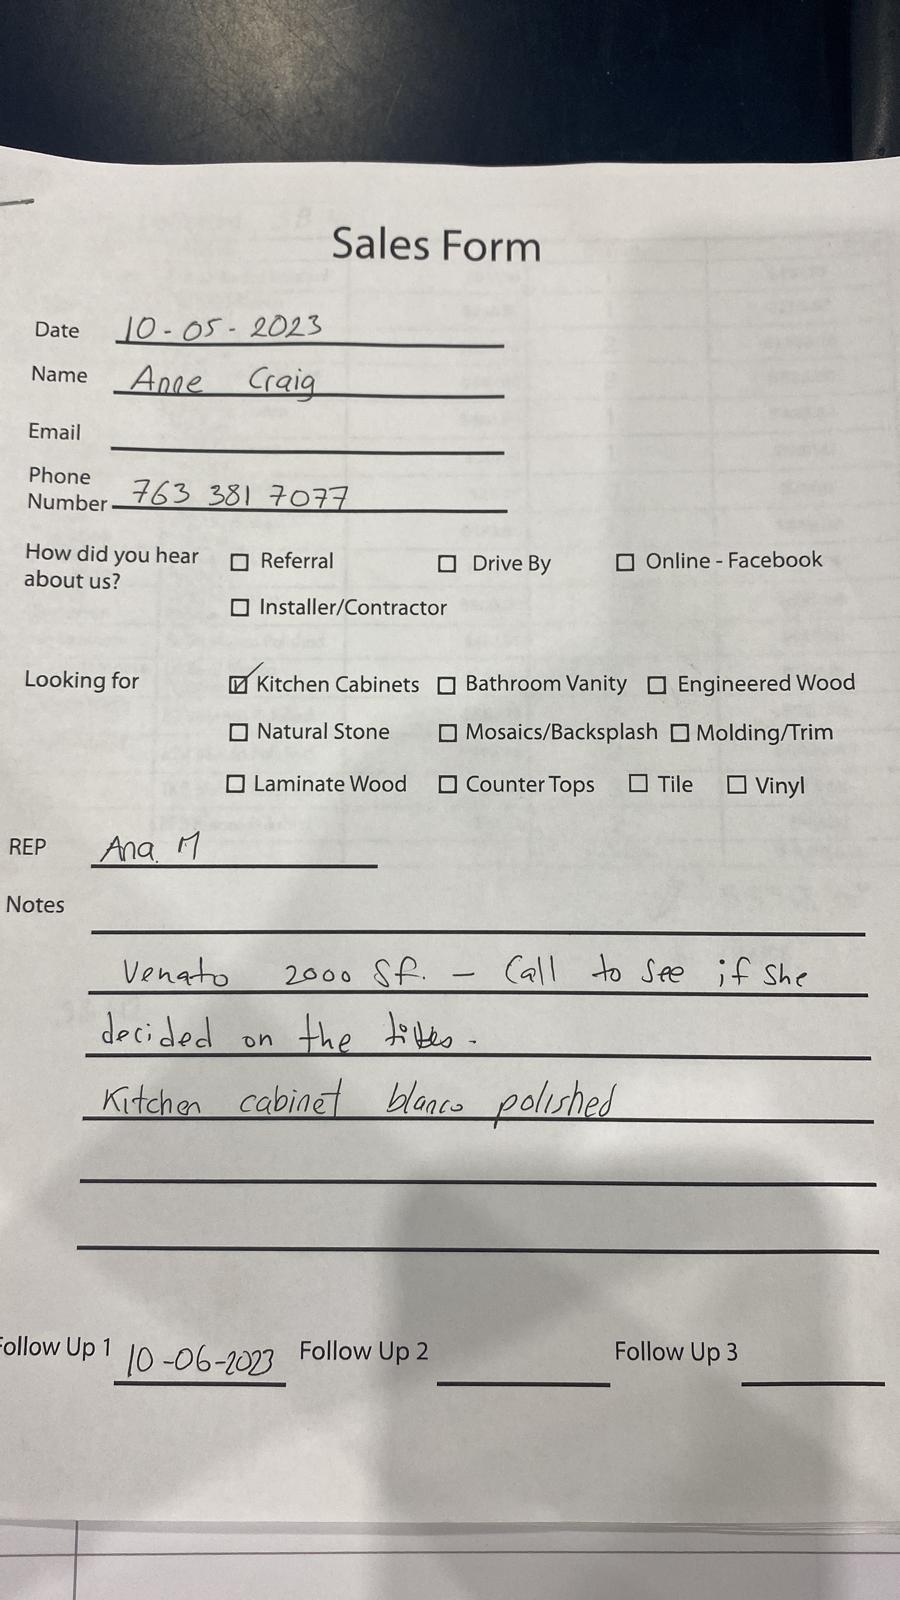 Sales Form
Date 10-05-2023
Name Anne Craig
Email
Phone
Number 763 381 7077
How did you hear
about us?
☐ Referral ☐ Drive By ☐ Online - Facebook
☐ Installer/Contractor
Looking for ☑ Kitchen Cabinets ☐ Bathroom Vanity ☐ Engineered Wood
☐ Natural Stone ☐ Mosaics/Backsplash ☐ Molding/Trim
☐ Laminate Wood ☐ Counter Tops ☐ Tile ☐ Vinyl
REP Ana. M
Notes
Venato 2000 Sf. - Call to see if she
decided on the
Kitchen cabinet blanco polished
Follow Up 1 10-06-2023 Follow Up 2 Follow Up 3